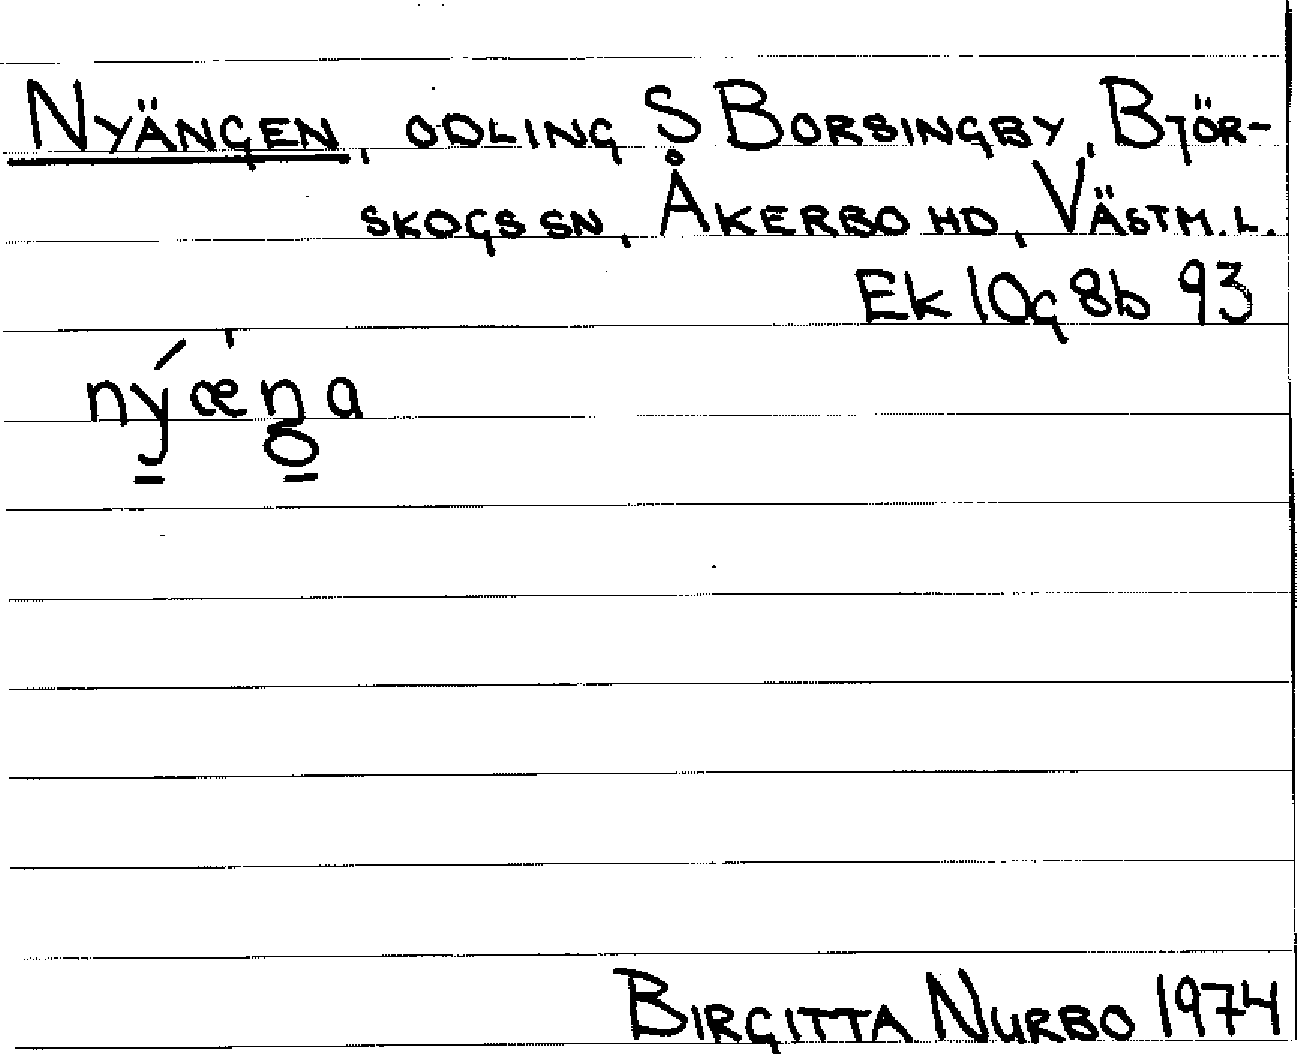 NYÄNGEN, ODLING S BORSINGBY, BJÖR-
SKOGS SN, ÅKERBO HD, VÄSTM.L.
Ek 10g 8b 93
nýæ̀ŋa
BIRGITTA NURBO 1974